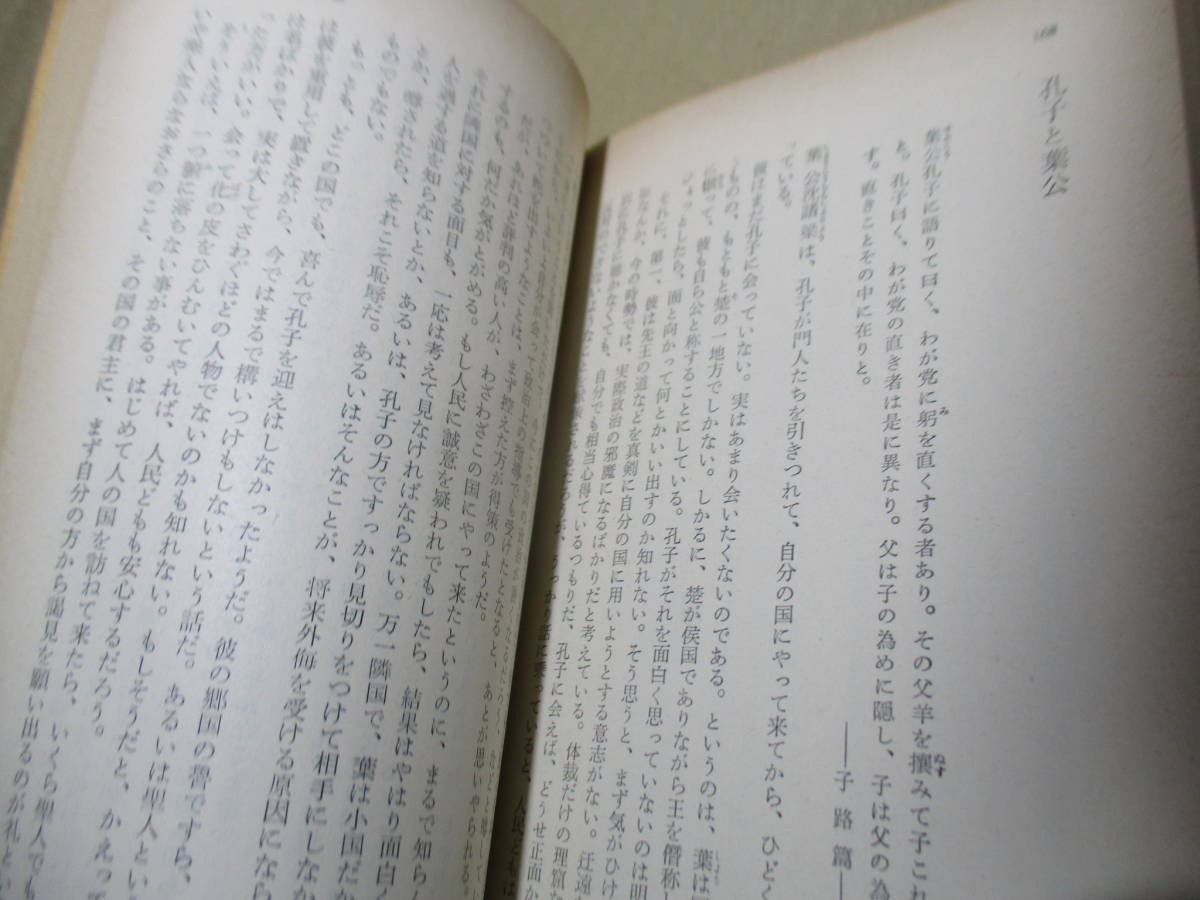 168
孔子と葉公
葉公孔子に語りて曰く、わが党に躬を直くする者あり。その父羊を攘みて子これ
と。孔子曰く、わが党の直き者は是に異なり。父は子の為めに隠し、子は父の為
す。直きことその中に在りと。
――子路篇―
葉公沈諸梁は、孔子が門人たちを引きつれて、自分の国にやって来てから、ひどく
っている。
彼はまだ孔子に会っていない。実はあまり会いたくないのである。というのは、葉は
ものの、もともと楚の一地方でしかない。しかるに、楚が侯国でありながら王を僭称し
に倣って、彼も自ら公と称することにしている。孔子がそれを面白く思っていないのは明
っとしたら、面と向かって何とかいい出すのか知れない。そう思うと、まず気がひけ
それに、第一、彼は先王の道などを真剣に自分の国に用いようとする意志がない。迂遠
今の時勢では、実際政治の邪魔になるばかりだと考えている。体裁だけの理窟な
孔子に聴かなくても、自分でも相当心得ているつもりだ。孔子に会えば、どうせ正面か
うっかり話に乗っていると、人民どもは
だが、あれほど評判の高い人が、わざわざこの国にやって来たというのに、まるで知らん
するのも、何だか気がとがめる。もし人民に誠意を疑われでもしたら、結果はやはり面白く
それに隣国に対する面目も、一応は考えて見なければならない。万一隣国で、葉は小国だか
人を遇する道を知らないとか、あるいは、孔子の方ですっかり見切りをつけて相手にしなか
とか、噂されたら、それこそ恥辱だ。あるいはそんなことが、将来外侮を受ける原因になら
ものでもない。
もっとも、どこの国でも、喜んで孔子を迎えはしなかったようだ。彼の郷国の魯ですら、
は彼を重用して置きながら、今ではまるで構いつけもしないという話だ。あるいは聖人とい
は名ばかりで、実は大してさわぐほどの人物でないのかも知れない。もしそうだと、かえって
た方がいい。会って化の皮をひんむいてやれば、人民どもも安心するだろう。
をいえば、一つ腑に落ちない事がある。はじめて人の国を訪ねて来たら、いくら聖人でも
のこと、その国の君主に、まず自分の方から謁見を願い出るのが礼とい